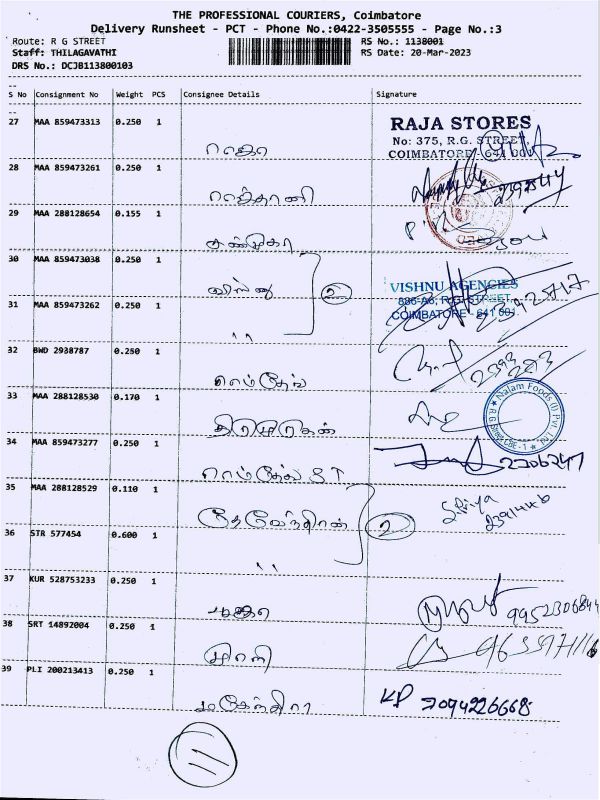 THE PROFESSIONAL COURIERS, Coimbatore
Delivery Runsheet - PCT - Phone No.:0422-3505555 - Page No.:3
Route: R G STREET RS No.: 1138001
Staff: THILAGAVATHI RS Date: 20-Mar-2023
DRS No.: DCJB113800103
S No Consignment No Weight PCS Consignee Details Signature
27 MAA 859473313 0.250 1
RAJA STORES
No: 375, R.G. STREET,
COIMBATORE - 641 001
ராஜா
28 MAA 859473261 0.250 1
2392544
ராஜ்தானி
29 MAA 288128654 0.155 1
சண்முகா
30 MAA 859473038 0.250 1
விஷ்ணு 2
VISHNU AGENCIES
886-A6, R.G. STREET,
COIMBATORE - 641 001
31 MAA 859473262 0.250 1
〃
32 BWD 2938787 0.250 1
ராம்தேவ்
33 MAA 288128530 0.170 1
Nalam Foods (I) Pvt. Ltd.
திருமுருகன்
34 MAA 859473277 0.250 1
2306247
ராம்தேவ் S T
35 MAA 288128529 0.110 1
S. Priya
2391446
தேவேந்திரன் 2
36 STR 577454 0.600 1
〃
37 KUR 528753233 0.250 1
9952306844
38 SRT 14892004 0.250 1
முரளி
39 PLI 200213413 0.250 1
KP 7094226668
மகேந்திரா
11